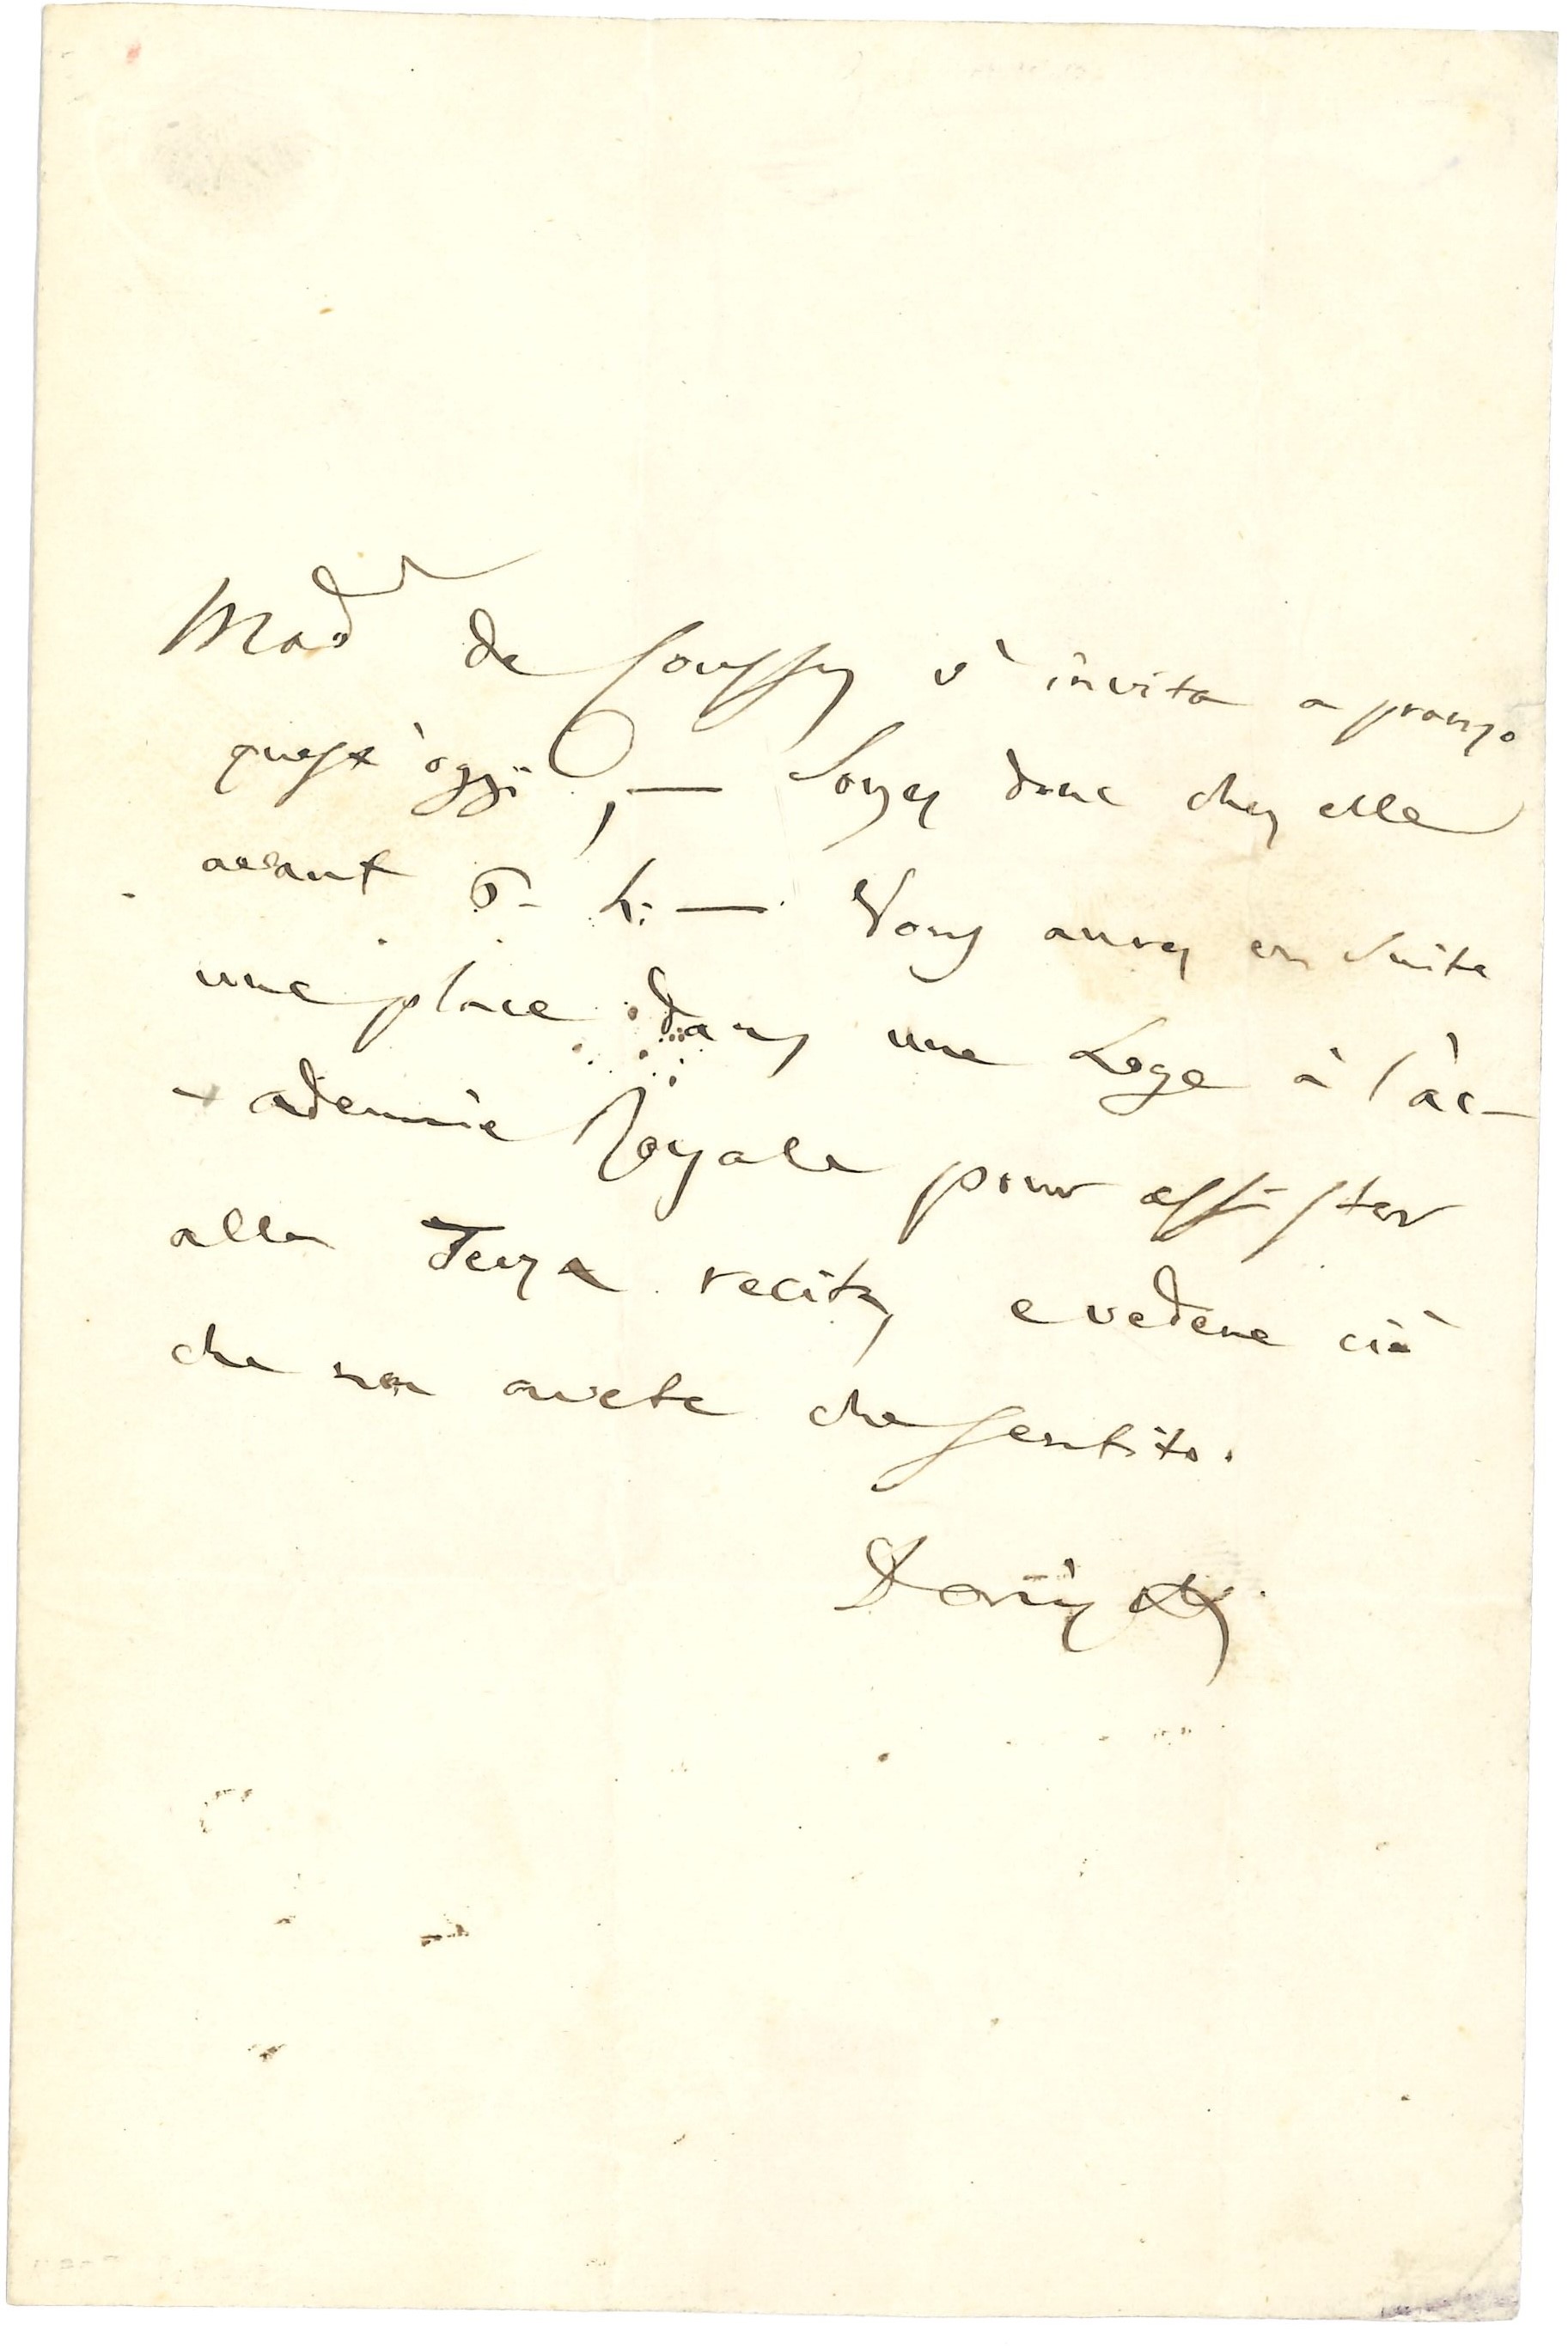 Mad de Coussy v'invita a pranzo
quest'oggi, — Soyez donc chez elle
avant 6 - h: — Vous aurez en suite
une place dans une Loge à l'ac-
-ademie Royale pour assister
alla Terza recita, e vedere ciò
che non avete che sentito.
Doniz